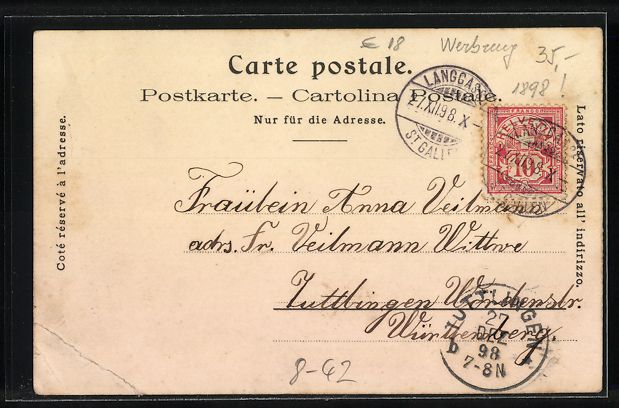 € 18 Werbung 35,-
1898!
Carte postale.
Postkarte. — Cartolina Postale.
Nur für die Adresse.
Coté réservé à l'adresse.
Lato riservato all' indirizzo.
LANGGASS
27.XII.98.X-
ST GALLEN
10
XII.98.X
Fräulein Anna Veilmann
adrs. Fr. Veilmann Wittwe
Tuttlingen
Württemberg
TUTTLINGEN
27
DEZ
98
b 7-8N
8-42